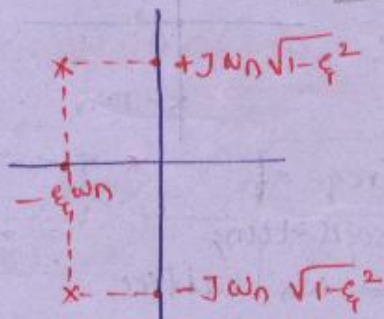 +J ωn √1-ξ²
- ξ ωn
-J ωn √1-ξ²